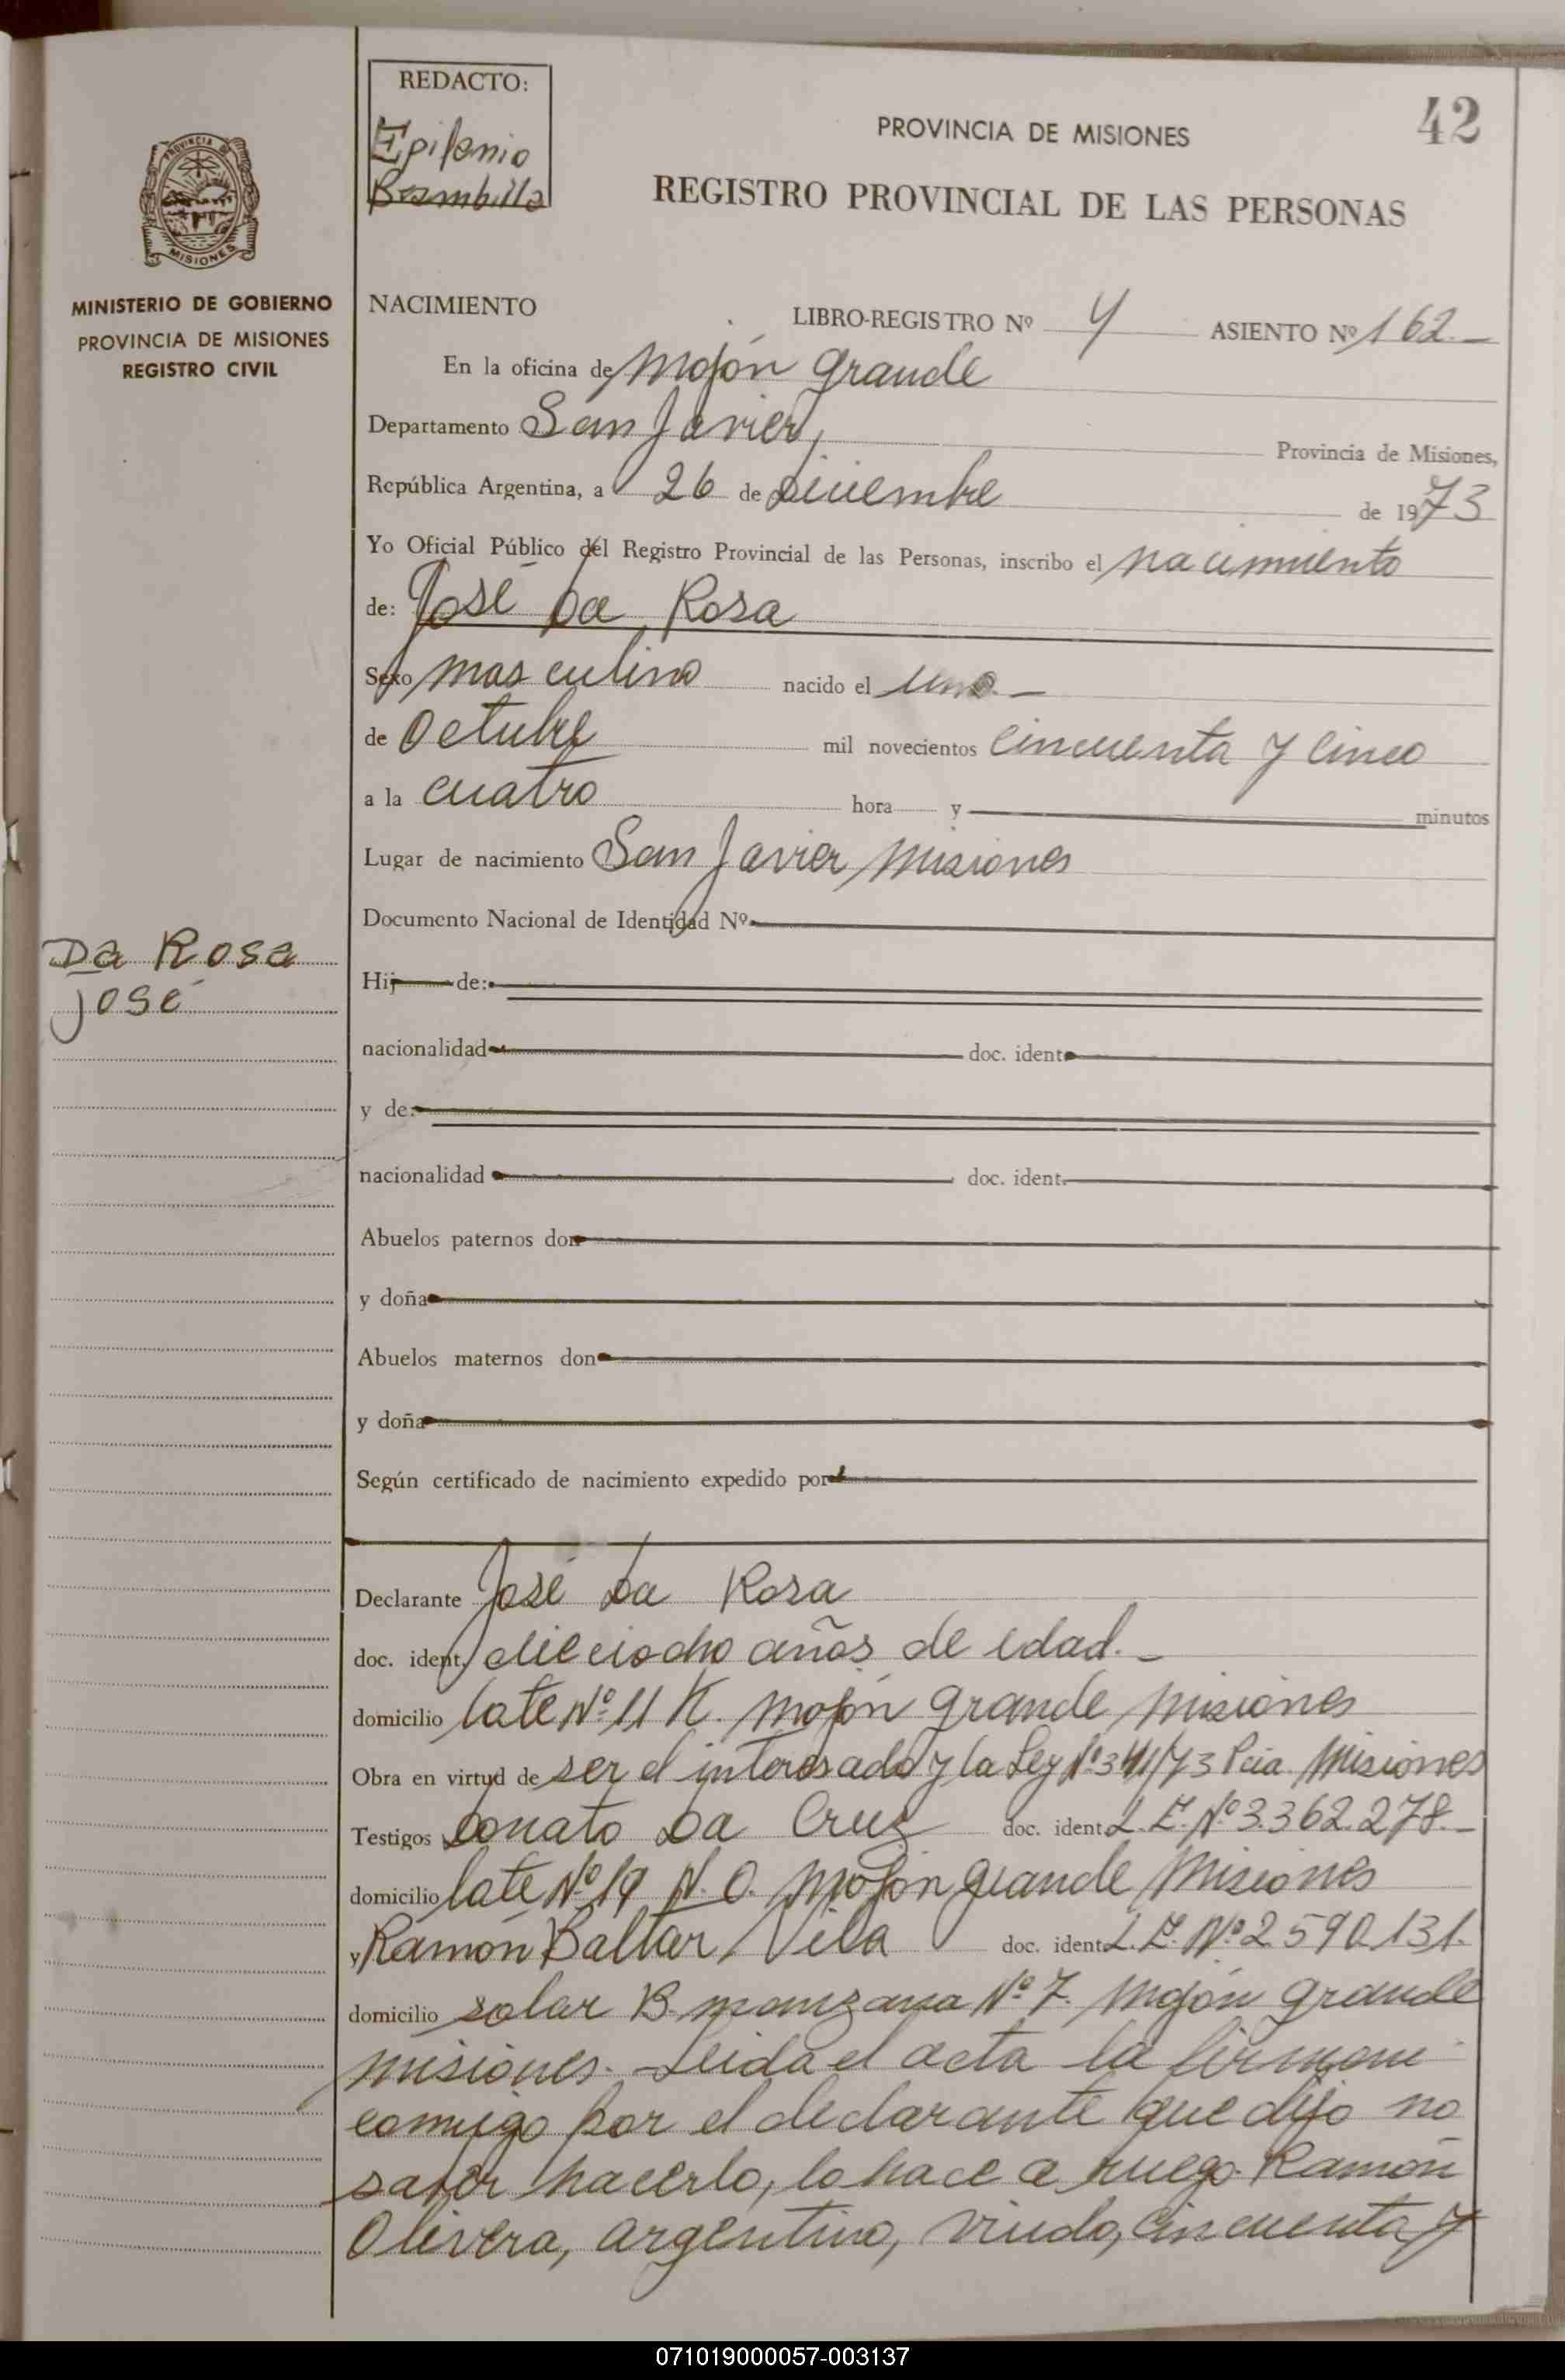 REDACTO:
Epifanio
Brambilla
42
PROVINCIA DE MISIONES
REGISTRO PROVINCIAL DE LAS PERSONAS
PROVINCIA DE
MISIONES
MINISTERIO DE GOBIERNO
PROVINCIA DE MISIONES
REGISTRO CIVIL
NACIMIENTO LIBRO-REGISTRO Nº 4 ASIENTO Nº 162.-
En la oficina de Mojón Grande
Departamento San Javier, Provincia de Misiones,
República Argentina, a 26 de Diciembre de 1973
Yo Oficial Público del Registro Provincial de las Personas, inscribo el nacimiento
de: José Da Rosa
Sexo masculino nacido el uno.-
de Octubre mil novecientos cincuenta y cinco
a la cuatro hora y minutos
Lugar de nacimiento San Javier Misiones
Documento Nacional de Identidad Nº
Da Rosa
José
Hij de:
nacionalidad doc. ident.
y de:
nacionalidad doc. ident.
Abuelos paternos don
y doña
Abuelos maternos don
y doña
Según certificado de nacimiento expedido por
Declarante José Da Rosa
doc. ident. dieciocho años de edad.-
domicilio lote Nº 11 K. Mojón Grande Misiones
Obra en virtud de ser el interesado y la Ley Nº 341/73 Pcia. Misiones
Testigos Donato Da Cruz doc. ident. L.E. Nº 3.362.278.-
domicilio lote Nº 19 N. O. Mojón Grande Misiones
y Ramón Baltar Vila doc. ident. L.E. Nº 2.590.131.
domicilio solar B. manzana Nº 7. Mojón Grande
Misiones.- Leida el acta la firman
comigo por el declarante que dijo no
saber hacerlo, lo hace a ruego Ramón
Olivera, argentino, viudo, cincuenta y
071019000057-003137